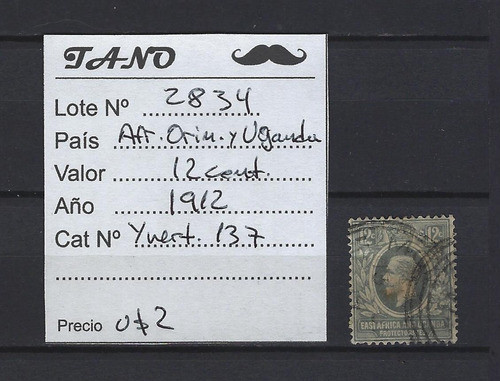 TANO
Lote Nº 2834
País Afr. Orin. y Uganda
Valor 12 cent.
Año 1912
Cat Nº Yvert. 137
Precio U$2
12c 12c
EAST AFRICA AND UGANDA
PROTECTORATES